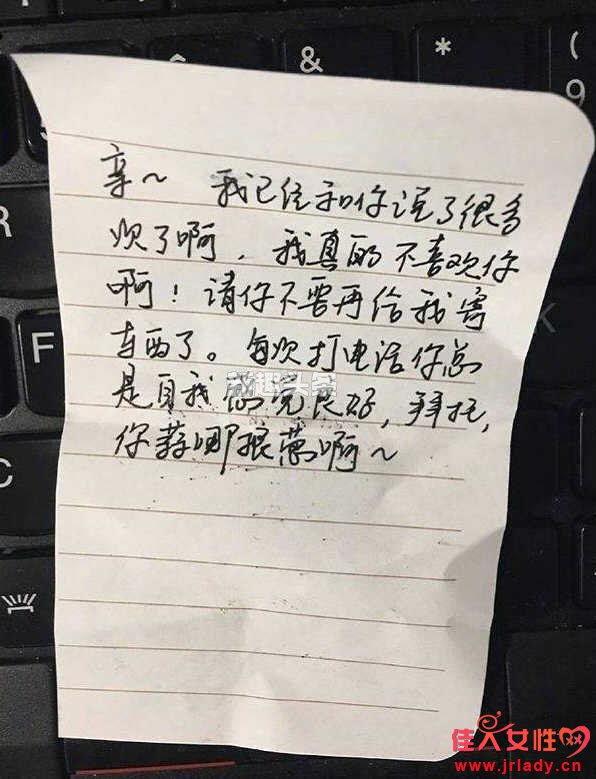 &
*
(
9
亲~ 我已经和你说了很多
次了啊，我真的不喜欢你
啊！请你不要再给我寄
东西了。每次打电话你总
是自我感觉良好，拜托，
你蒜哪根葱啊~
R
F
C
K
佳人女性网
www.jrlady.cn